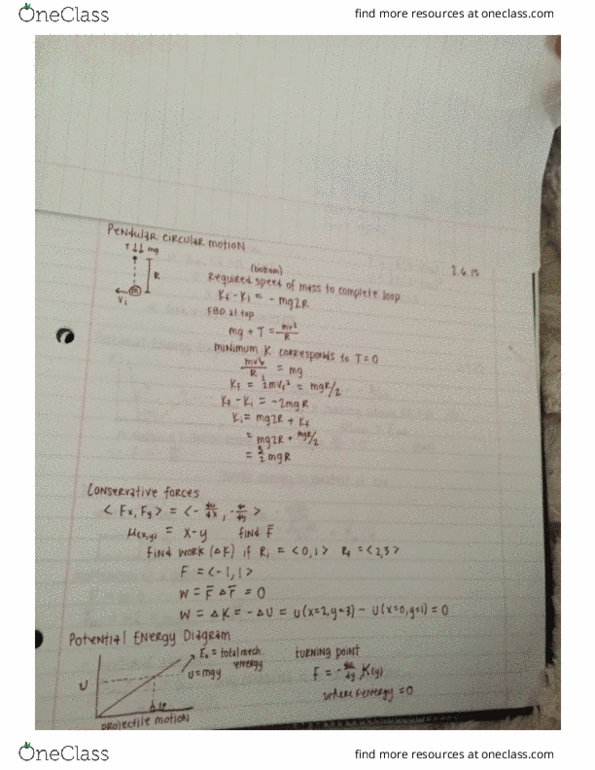 OneClass
find more resources at oneclass.com
Pendular circular motion
T ↓↓ mg
2.6.15
R
m
Vi
(bottom)
Required speed of mass to complete loop
Kf - Ki = - mg2R
FBD at top
mg + T = mv²/R
minimum K corresponds to T = 0
mv²/R = mg
Kf = ½mvf² = mgR/2
Kf - Ki = -2mgR
Ki = mg2R + Kf
= mg2R + mgR/2
= 5/2 mgR
Conservative forces
< Fx, Fy > = < - du/dx , - du/dy >
μ(x,y) = x - y find F̄
find work (ΔK) if Ri = <0,1> Rf = <2,3>
F = <-1, 1>
W = F̄ Δr̄ = 0
W = ΔK = -ΔU = U(x=2,y=3) - U(x=0,y=1) = 0
Potential Energy Diagram
E = total mech. energy
U = mgy
U
projectile motion
turning point
F = - du/dy K(y)
where energy = 0
OneClass
find more resources at oneclass.com